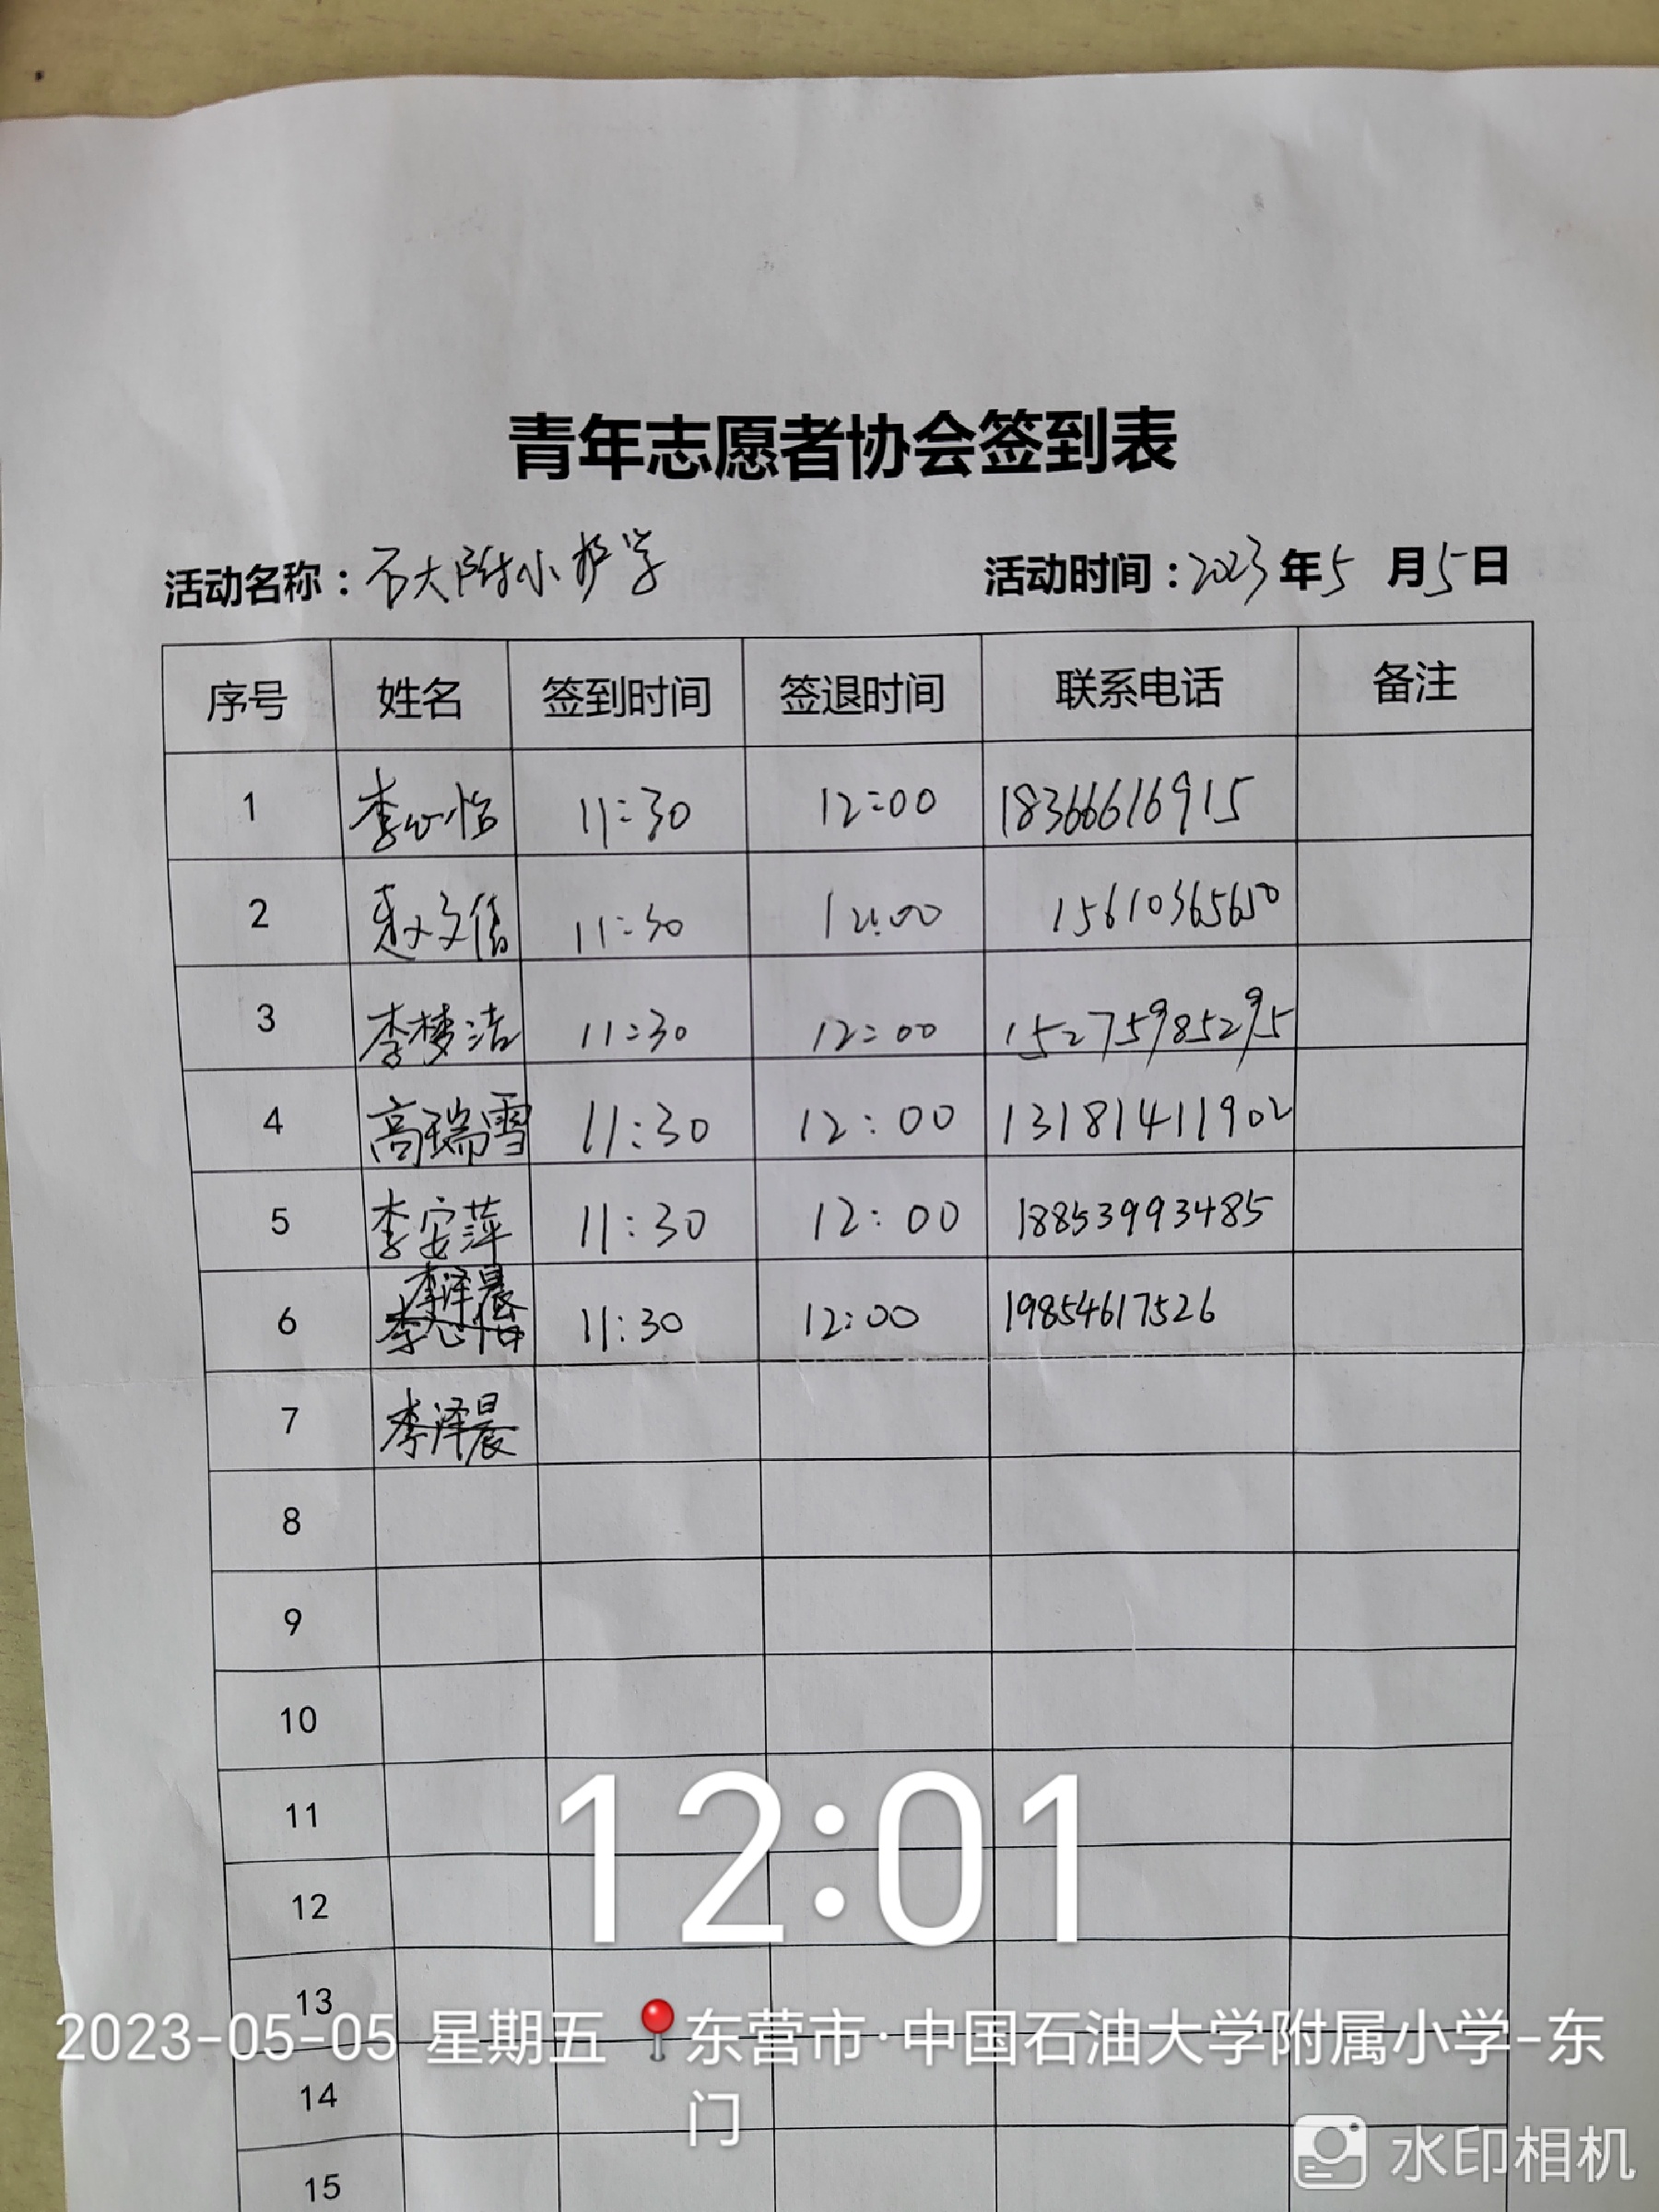 青年志愿者协会签到表
活动名称：石大附小护学 活动时间：2023年5月5日
序号 姓名 签到时间 签退时间 联系电话 备注
1 李心怡 11:30 12:00 18366616915
2 11:30 12:00 15610365650
3 李梦洁 11:30 12:00 15275985295
4 高瑞雪 11:30 12:00 13181411902
5 李安萍 11:30 12:00 18853993485
6 李泽晨 11:30 12:00 19854617526
7 李泽晨
8
9
10
11
12
13
14
15
12:01
2023-05-05 星期五 东营市·中国石油大学附属小学-东
门
水印相机